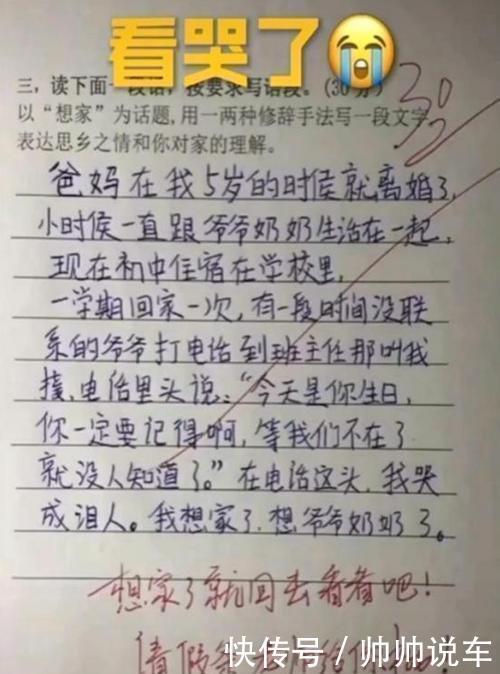 看哭了
三，读下面一段话，按要求写语段。(30分)
30
以“想家”为话题,用一两种修辞手法写一段文字,
表达思乡之情和你对家的理解。
爸妈在我5岁的时候就离婚了,
小时侯一直跟爷爷奶奶生活在一起,
现在初中住宿在学校里,
一学期回家一次,有一段时间没联
系的爷爷打电话到班主任那叫我
接,电话里头说:“今天是你生日,
你一定要记得啊,等我们不在了
就没人知道了。”在电话这头,我哭
成泪人。我想家了,想爷爷奶奶了。
想家了就回去看看吧!
请假条
快传号/帅帅说车